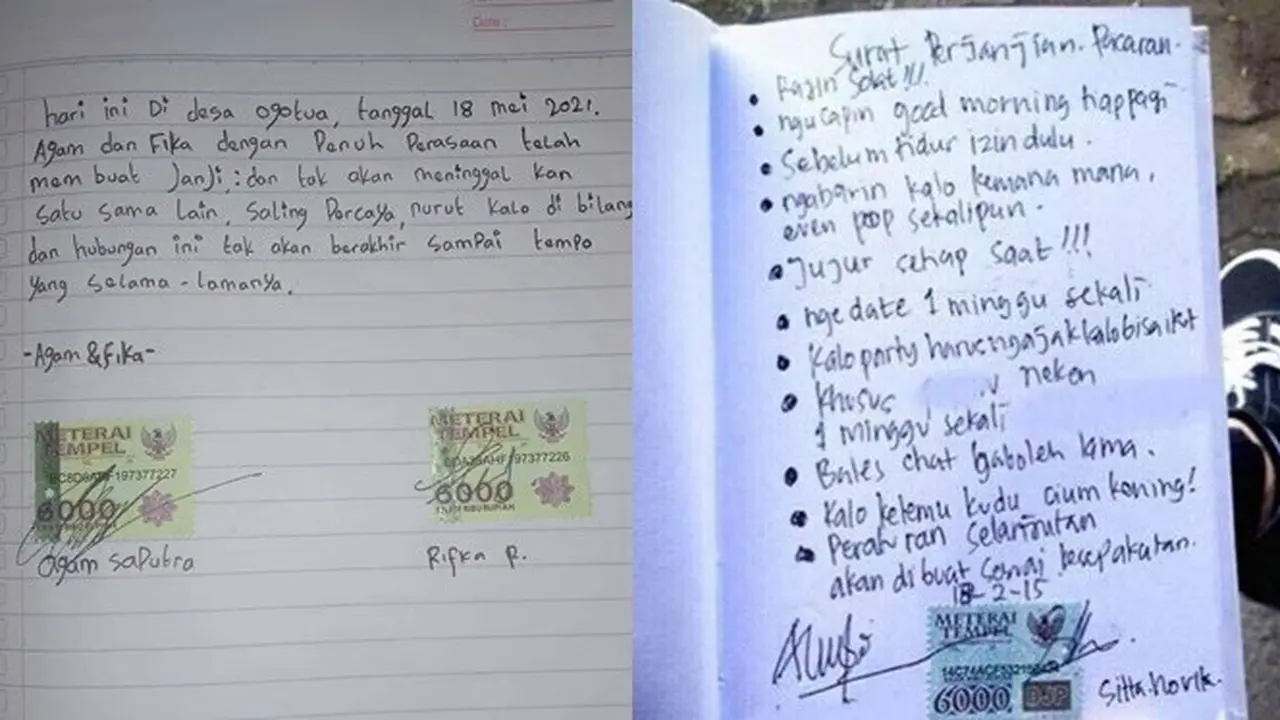 Date :
hari ini Di desa ogotua, tanggal 18 mei 2021.
Agam dan Fika dengan Penuh Perasaan telah
mem buat Janji : dan tak akan meninggal kan
satu sama lain, Saling Percaya, nurut kalo di bilang
dan hubungan ini tak akan berakhir samPai tempo
yang selama - lamanya.
-Agam & Fika-
METERAI
TEMPEL
197377227
6000
ENAM RIBU RUPIAH
agam saPutra
METERAI
TEMPEL
197377226
6000
ENAM RIBU RUPIAH
Rifka R.
Surat Perjanjian Pacaran.
• Rajin Solat!!!
• ngucapin good morning tiap pagi
• Sebelum tidur izin dulu.
• ngabarin kalo kemana mana,
even poop sekalipun.
• Jujur setiap saat!!!
• nge date 1 minggu sekali
• Kalo party harus ngajak kalo bisa ikt
• Khusus nekon
1 minggu sekali
• Bales chat gaboleh lama.
• Kalo ketemu kudu cium kening!
• Peraturan Selanjutan
akan dibuat sesuai kesepakatan.
18-2-15
METERAI
TEMPEL
6000 DJP
Sitta.novik.